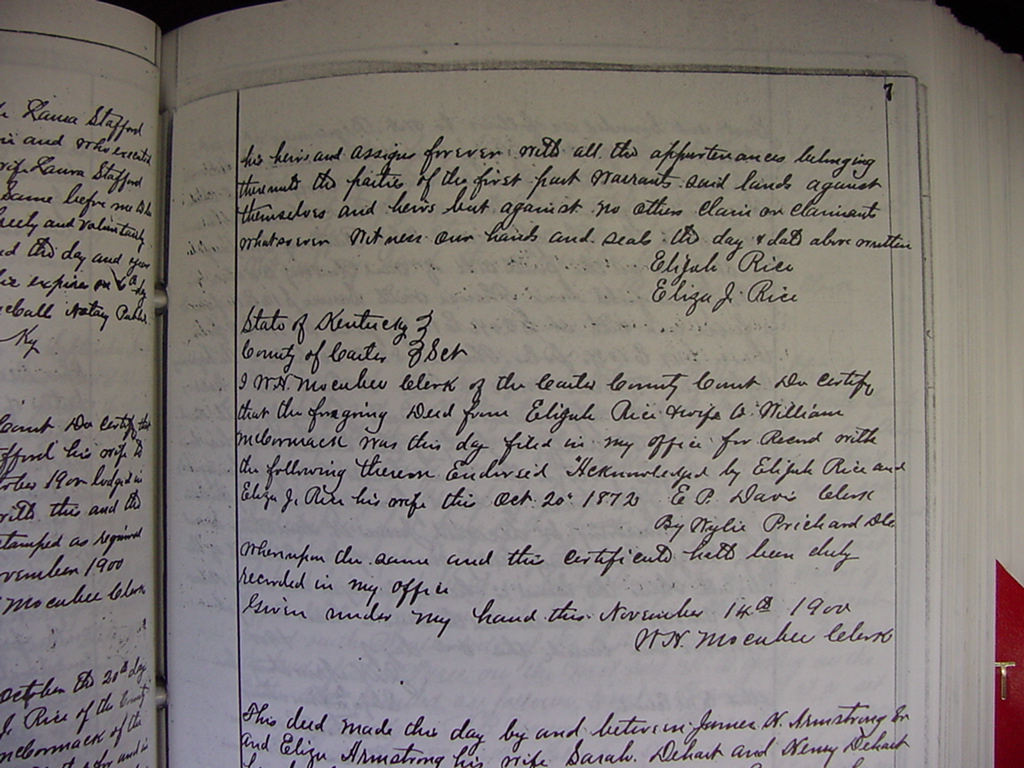 Laura Stafford
and who executed
wife Laura Stafford
Same before me to be
freely and voluntary
and the day and year
expires on 6th day
Notary Public
Ky
Court Do certify that
Stafford his wife to
1900 lodged in
with this and the
stamped as required
November 1900
Mocabee Clerk
October the 20th day
J. Rice of the County
McCormack of the
7
his heirs and assigns forever with all the appurtenances belonging
thereunto the parties of the first part warrants said lands against
themselves and heirs but against no others claim or claimants
whatsoever Witness our hands and seals the day & date above written
Elijah Rice
Eliza J. Rice
State of Kentucky }
County of Carter } Sct
I W.N. Mocabee Clerk of the Carter County Court Do certify
that the foregoing Deed from Elijah Rice & wife to William
McCormack was this day filed in my office for Record with
the following thereon Endorsed "Acknowledged by Elijah Rice and
Eliza J. Rice his wife this Oct. 20th 1872 E. P. Davis Clerk
By Wylie Prichard D.C.
Whereupon the same and this certificate hath been duly
recorded in my office
Given under my hand this November 14th 1900
W.N. Mocabee Clerk
This deed made this day by and between James H. Armstrong Sr
and Eliza Armstrong his wife Sarah Dehart and Henry Dehart
T